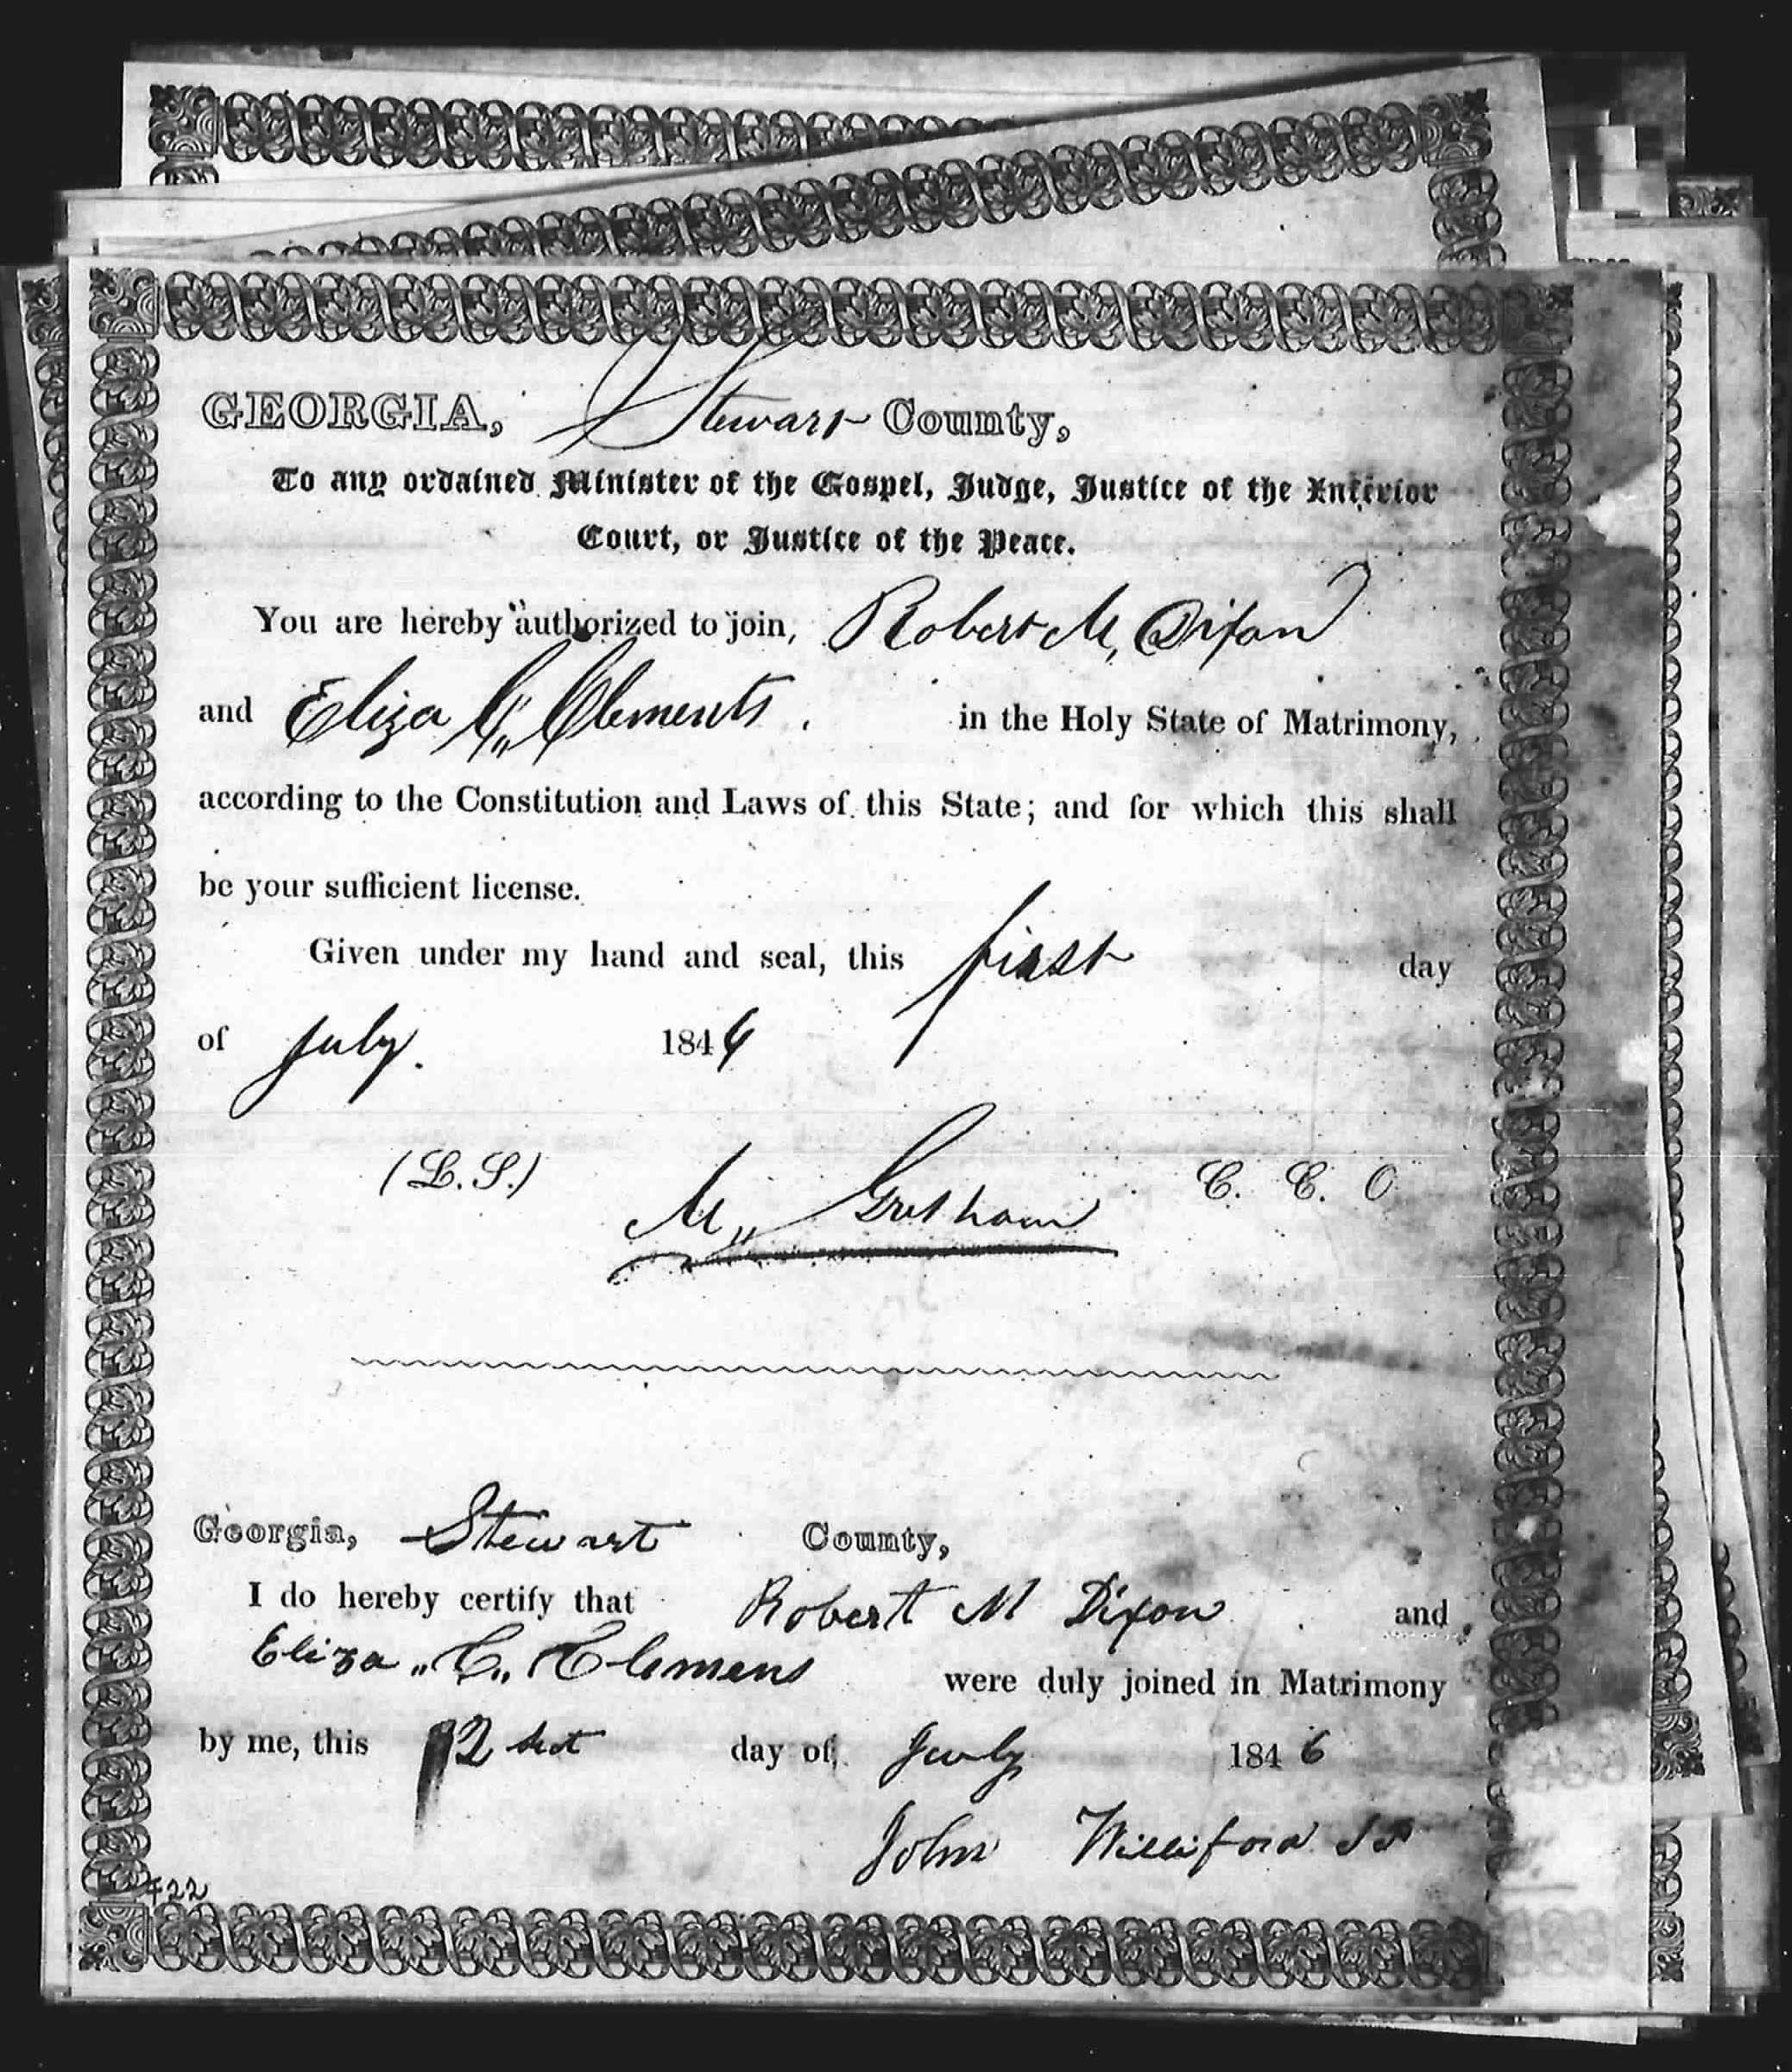 GEORGIA, Stewart County,
To any ordained Minister of the Gospel, Judge, Justice of the Inferior
Court, or Justice of the Peace.
You are hereby authorized to join, Robert M, Dixon
and Eliza C,, Clements.
in the Holy State of Matrimony,
according to the Constitution and Laws of this State; and for which this shall
be your sufficient license.
Given under my hand and seal, this first day
of July. 1846
(L.S.) M,, Gresham C. C. O
Georgia, Stewart County,
I do hereby certify that Robert M Dixon and
Eliza „C„ Clemens were duly joined in Matrimony
by me, this 12 day of July 1846
John Williford JP
422